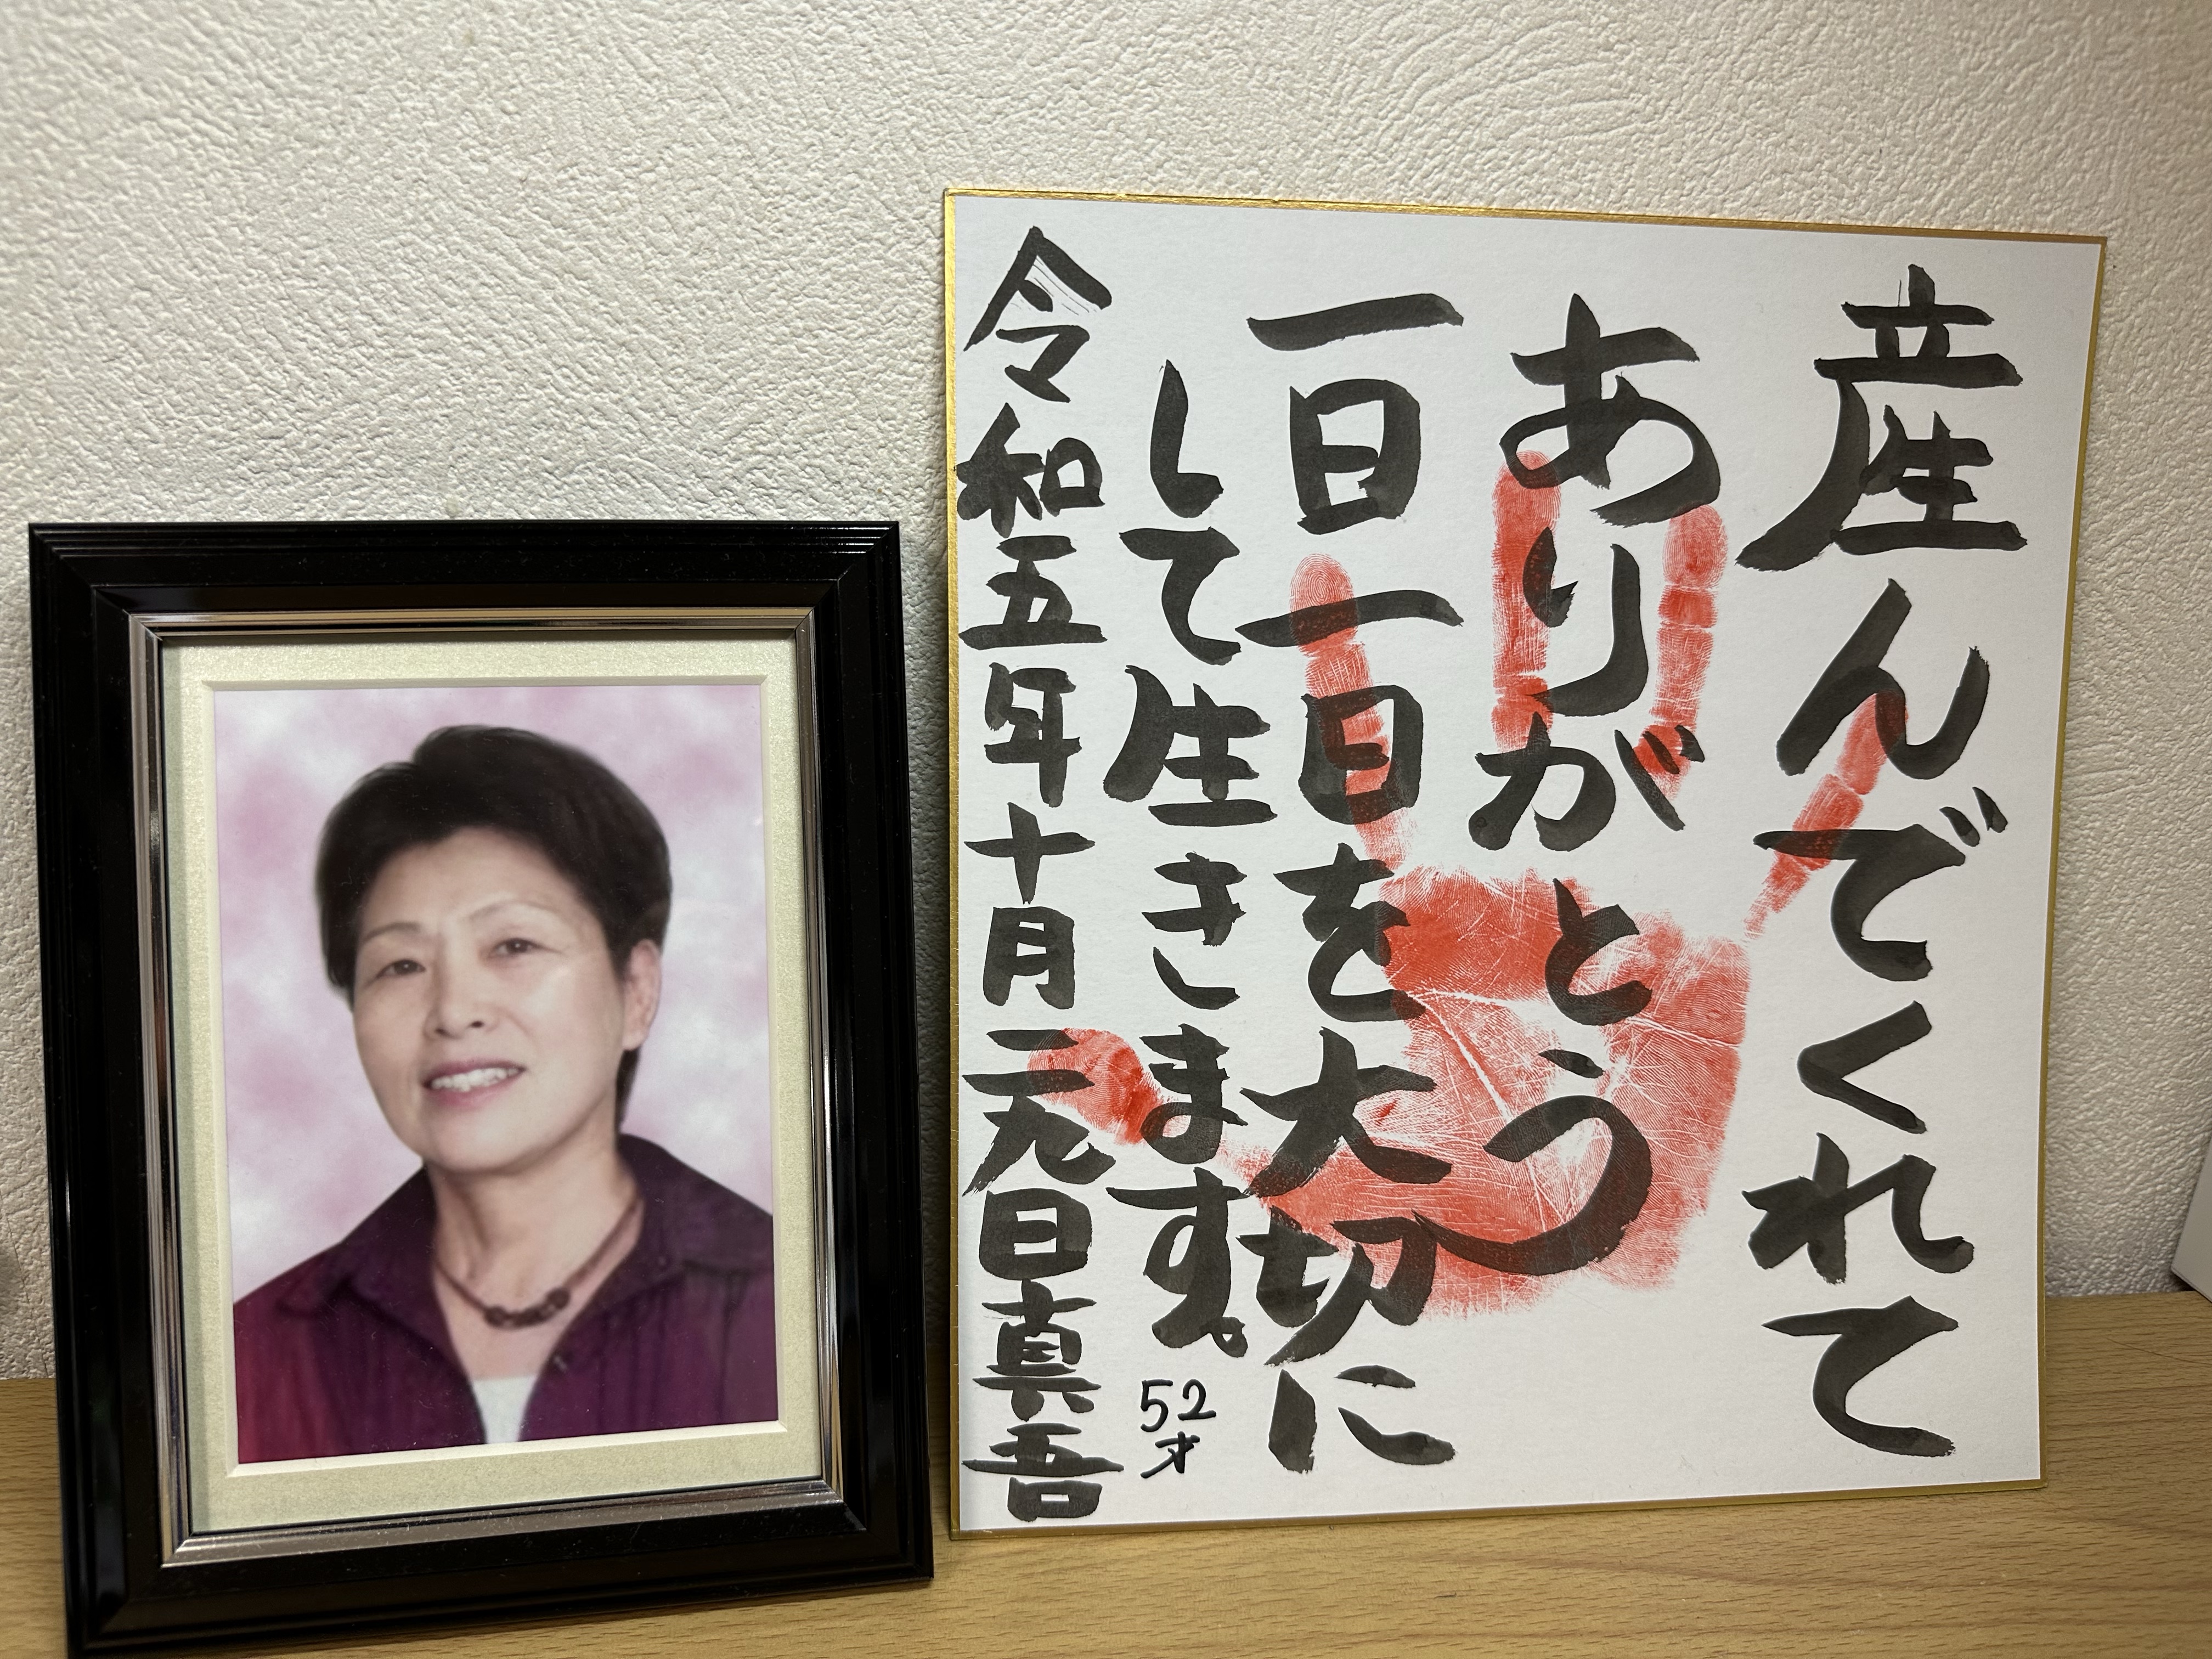 産んでくれて
ありがとう
一日一日を大切に
して生きます。
52才
令和五年十月二九日真吾